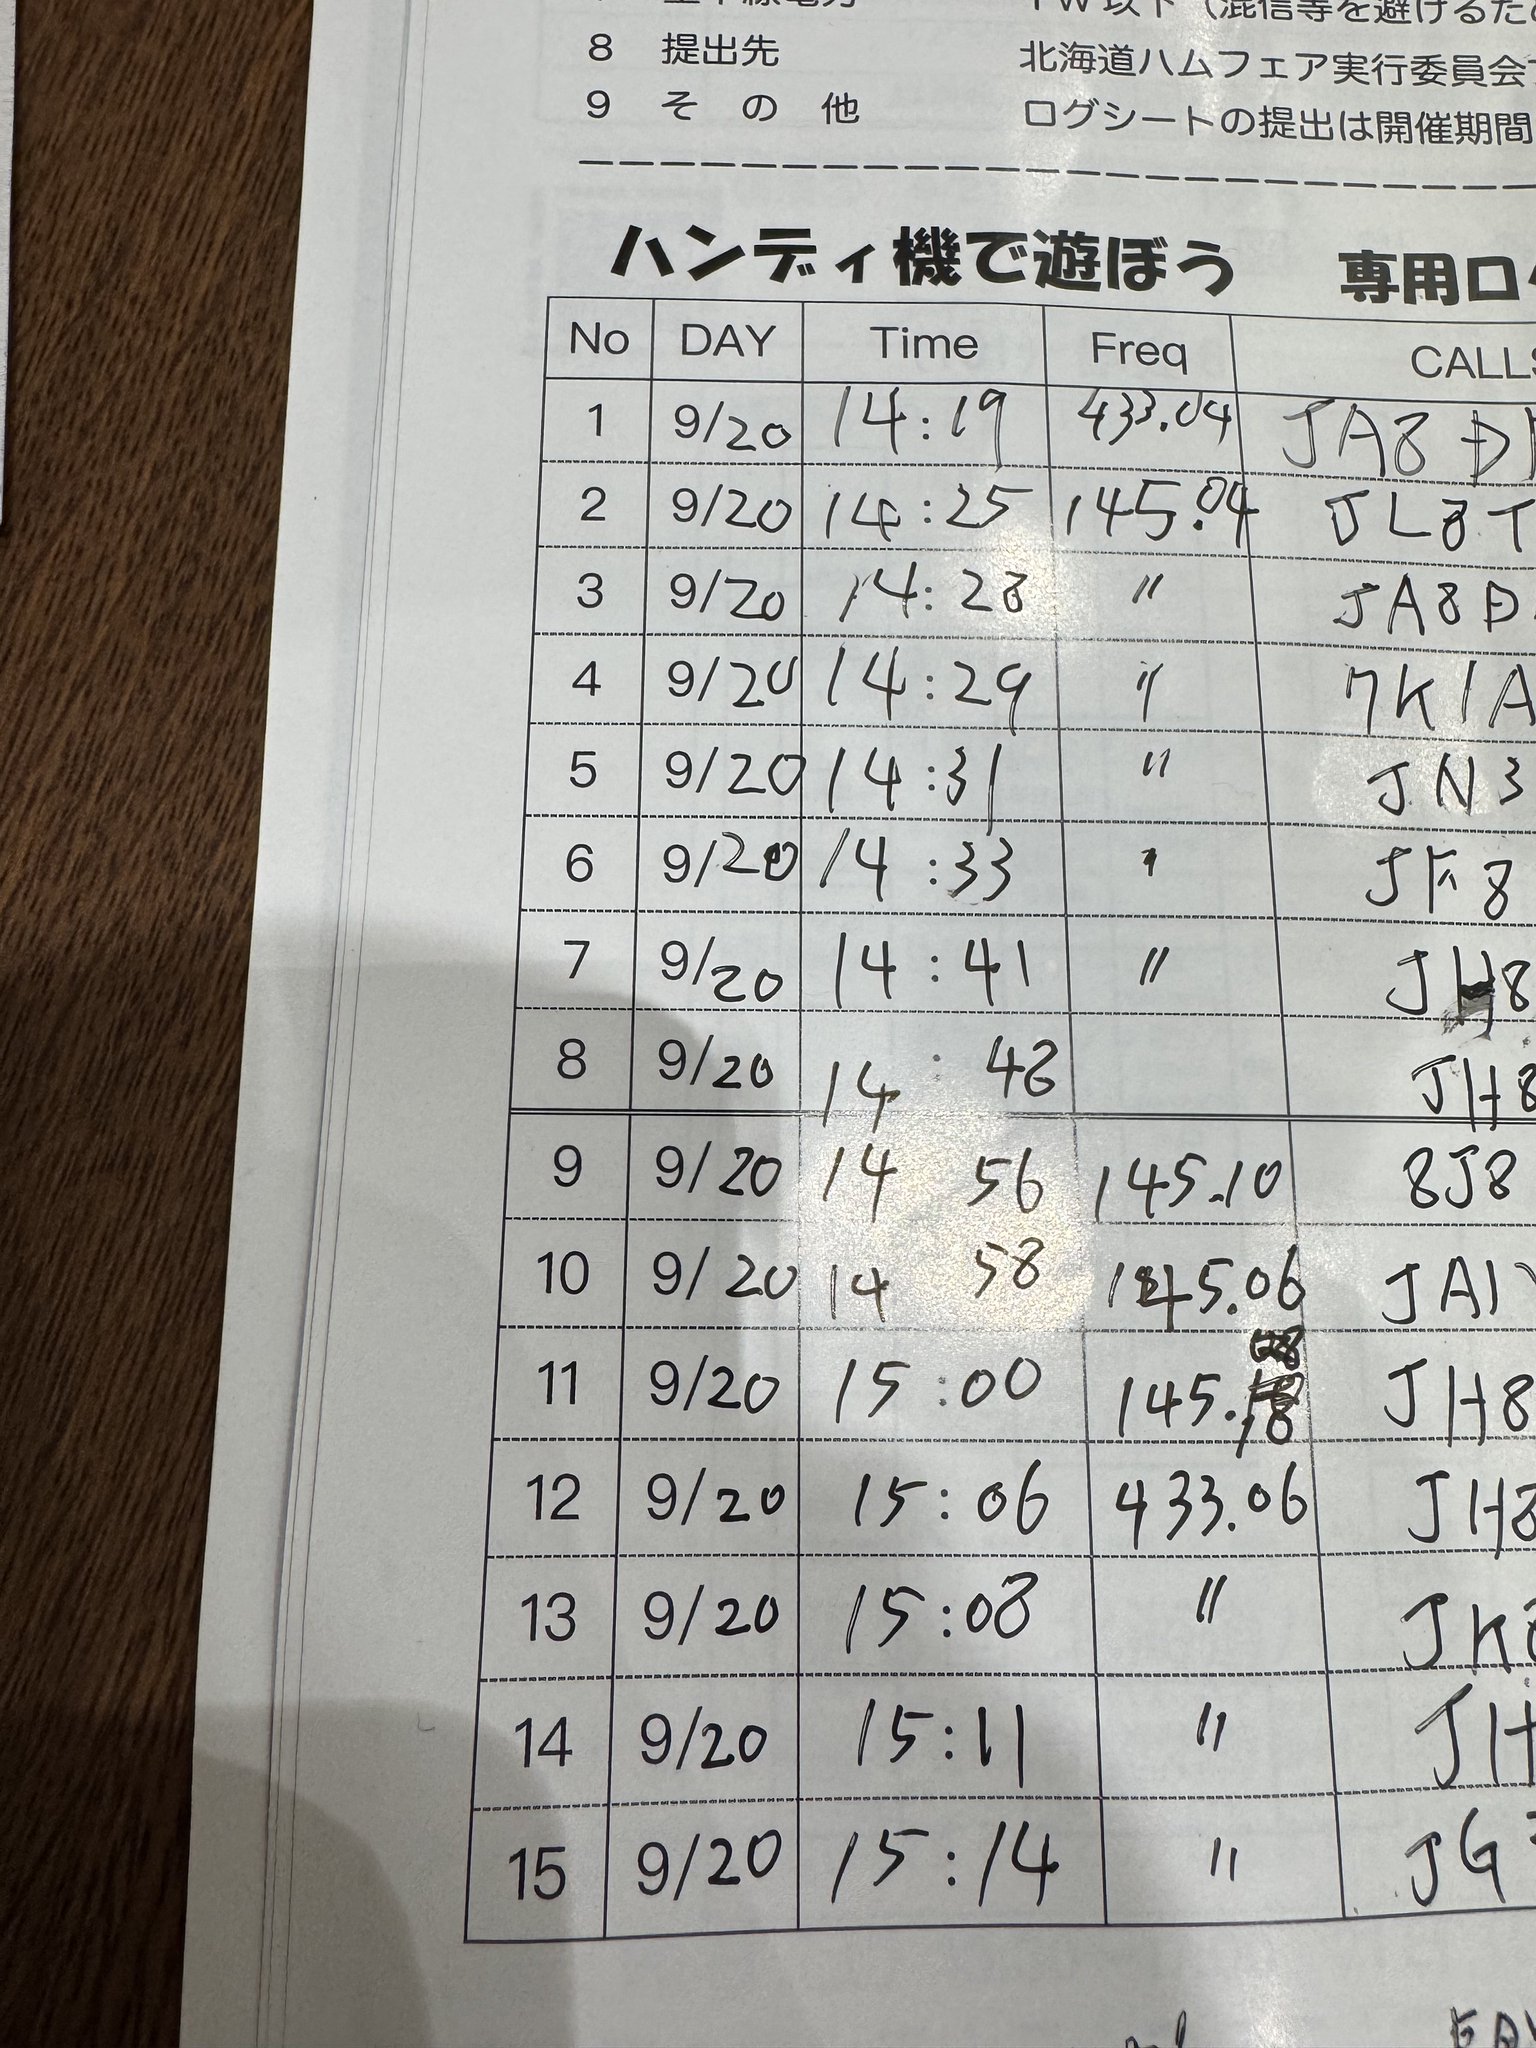 1W以下（混信等を避けるため
8 提出先 北海道ハムフェア実行委員会
9 その他 ログシートの提出は開催期間
ハンディ機で遊ぼう 専用ログ
No DAY Time Freq CALLS
1 9/20 14:19 433.04 JA8
2 9/20 14:25 145.04 JL8T
3 9/20 14:28 〃 JA8D
4 9/20 14:29 〃 7K1A
5 9/20 14:31 〃 JN3
6 9/20 14:33 〃 JF8
7 9/20 14:41 〃 JH8
8 9/20 14:48 JH8
9 9/20 14 56 145.10 8J8
10 9/20 14 58 145.06 JA1
11 9/20 15:00 145.08 JH8
12 9/20 15:06 433.06 JH8
13 9/20 15:08 〃 JK8
14 9/20 15:11 〃 JH
15 9/20 15:14 〃 JG